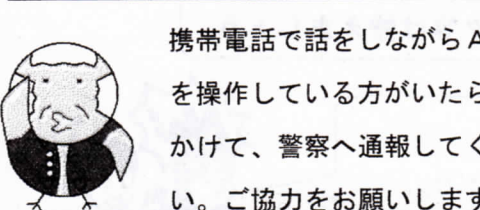 携帯電話で話をしながらA
を操作している方がいたら
かけて、警察へ通報してく
い。ご協力をお願いします